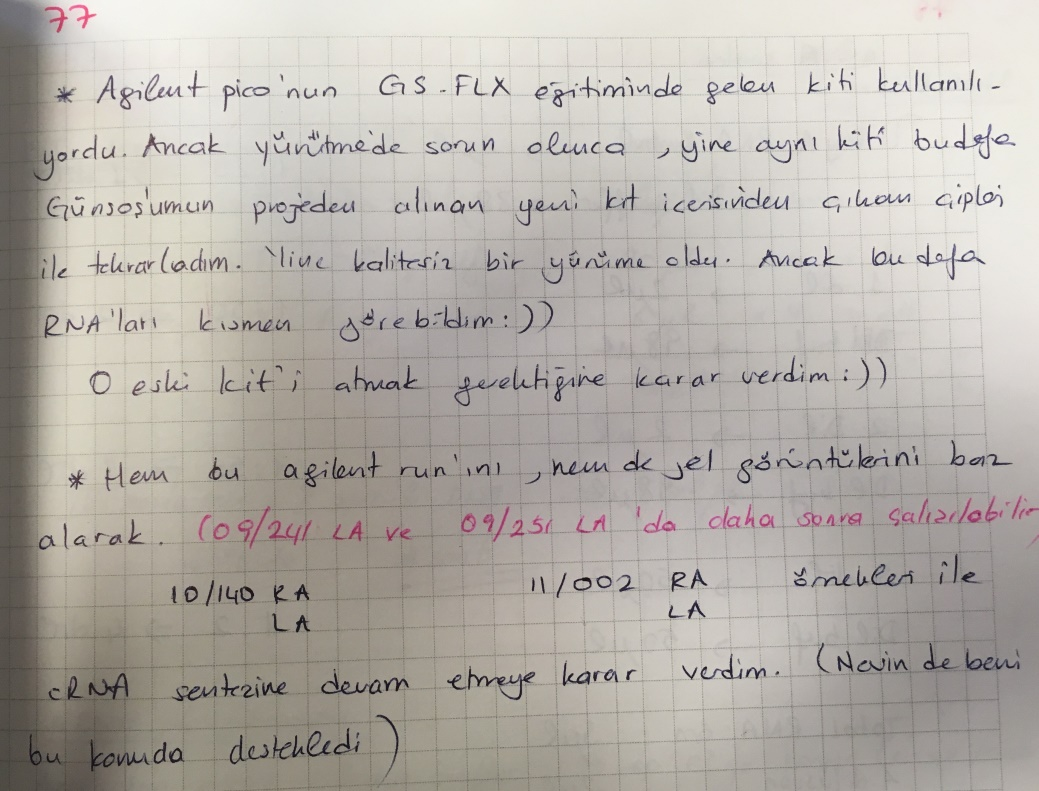 77
* Agilent pico'nun GS-FLX eğitiminde gelen kiti kullanılı-
yordu. Ancak yürütme'de sorun olunca, yine aynı kiti bu defa
Günsos'umun projeden alınan yeni kit icerisinden çıkan çipler
ile tekrarladım. Yine kalitesiz bir yürüme oldu. Ancak bu defa
RNA'ları kısmen görebildim:))
O eski kit'i atmak gerektiğine karar verdim:))
* Hem bu agilent run'ını, hem de jel görüntülerini baz
alarak. (09/241 LA ve 09/251 LA 'da daha sonra çalışılabilir
10/140 RA 11/002 RA örnekleri ile
LA LA
cRNA sentezine devam etmeye karar verdim. (Nevin de beni
bu konuda destekledi)